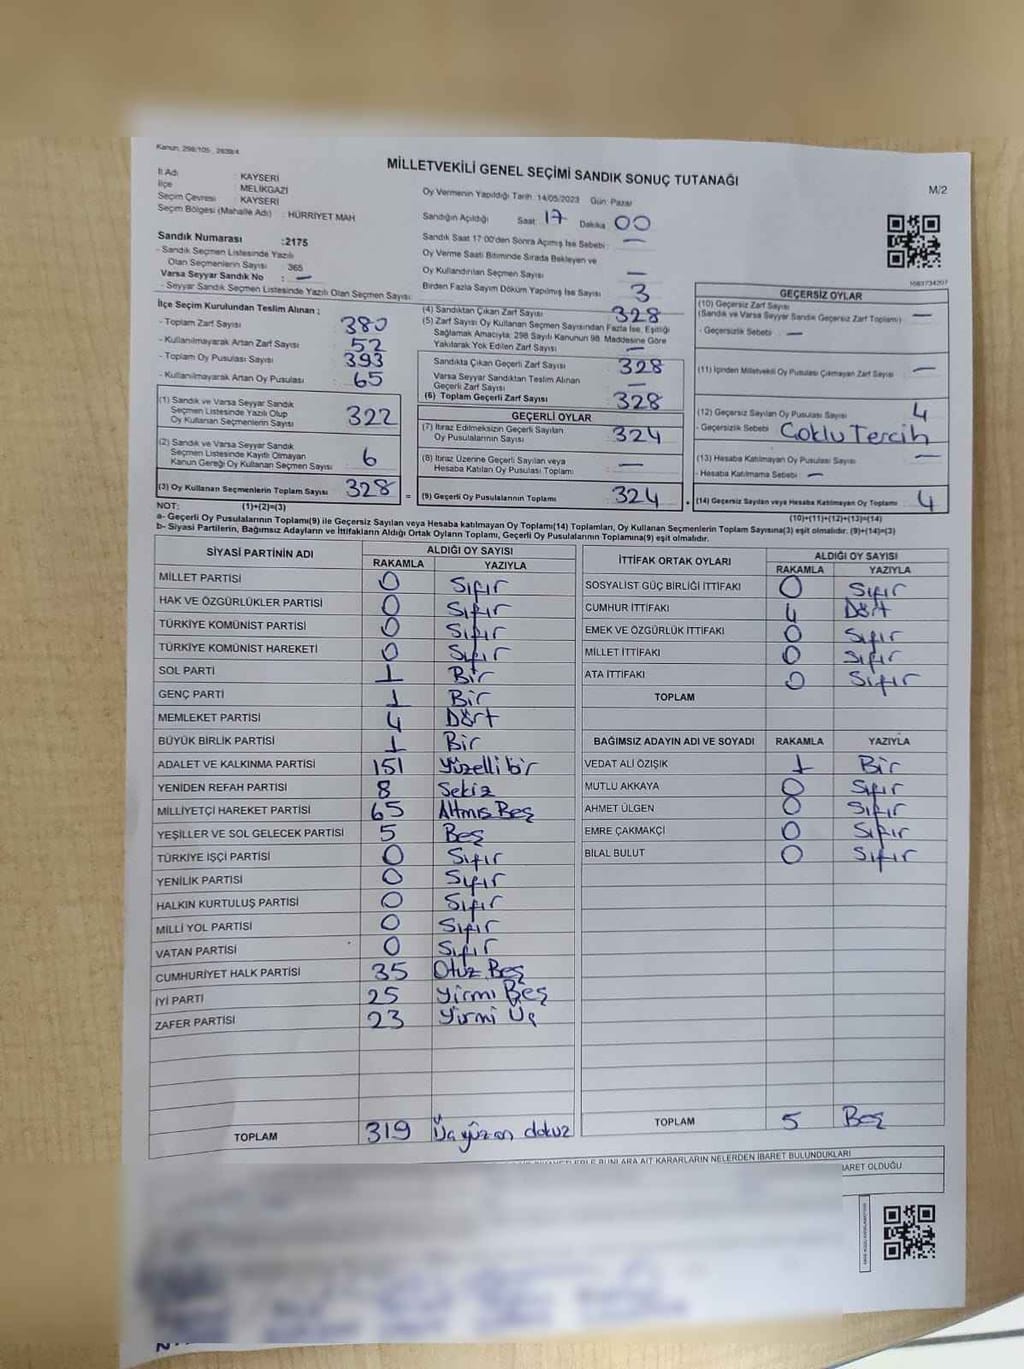 Kanun: 298/105 , 2839/4
MİLLETVEKİLİ GENEL SEÇİMİ SANDIK SONUÇ TUTANAĞI
M/2
İl Adı : KAYSERİ
İlçe : MELİKGAZİ
Seçim Çevresi : KAYSERİ
Seçim Bölgesi (Mahalle Adı) : HÜRRİYET MAH
Oy Vermenin Yapıldığı Tarih: 14/05/2023 Gün: Pazar
Sandığın Açıldığı Saat: 17 Dakika 00
Sandık Saat 17:00'den Sonra Açılmış İse Sebebi : —
Oy Verme Saati Bitiminde Sırada Bekleyen ve
Oy Kullandırılan Seçmen Sayısı —
Birden Fazla Sayım Döküm Yapılmış İse Sayısı 3
Sandık Numarası :2175
- Sandık Seçmen Listesinde Yazılı
Olan Seçmenlerin Sayısı 365
Varsa Seyyar Sandık No : —
- Seyyar Seçmen Listesinde Yazılı Olan Seçmen Sayısı:
İlçe Seçim Kurulundan Teslim Alınan ;
- Toplam Zarf Sayısı 380
- Kullanılmayarak Artan Zarf Sayısı 52
- Toplam Oy Pusulası Sayısı 393
- Kullanılmayarak Artan Oy Pusulası 65
(1) Sandık ve Varsa Seyyar Sandık
Seçmen Listesinde Yazılı Olup
Oy Kullanan Seçmenlerin Sayısı 322
(2) Sandık ve Varsa Seyyar Sandık
Seçmen Listesinde Kayıtlı Olmayan
Kanun Gereği Oy Kullanan Seçmen Sayısı 6
(3) Oy Kullanan Seçmenlerin Toplam Sayısı 328
(4) Sandıktan Çıkan Zarf Sayısı 328
(5) Zarf Sayısı Oy Kullanan Seçmen Sayısından Fazla İse, Eşitliği
Sağlamak Amacıyla, 298 Sayılı Kanunun 98. Maddesine Göre
Yakılarak Yok Edilen Zarf Sayısı —
Sandıkta Çıkan Geçerli Zarf Sayısı 328
Varsa Seyyar Sandıktan Teslim Alınan
Geçerli Zarf Sayısı —
(6) Toplam Geçerli Zarf Sayısı 328
GEÇERLİ OYLAR
(7) İtiraz Edilmeksizin Geçerli Sayılan
Oy Pusulalarının Sayısı 324
(8) İtiraz Üzerine Geçerli Sayılan veya
Hesaba Katılan Oy Pusulası Toplamı —
= (9) Geçerli Oy Pusulalarının Toplamı 324
GEÇERSİZ OYLAR
(10) Geçersiz Zarf Sayısı
(Sandık ve Varsa Seyyar Sandık Geçersiz Zarf Toplamı) —
- Geçersizlik Sebebi : —
(11) İçinden Milletvekili Oy Pusulası Çıkmayan Zarf Sayısı —
(12) Geçersiz Sayılan Oy Pusulası Sayısı 4
- Geçersizlik Sebebi : Çoklu Tercih
(13) Hesaba Katılmayan Oy Pusulası Sayısı —
- Hesaba Katılmama Sebebi : —
+ (14) Geçersiz Sayılan veya Hesaba Katılmayan Oy Toplamı 4
NOT: (1)+(2)=(3) (10)+(11)+(12)+(13)=(14)
a- Geçerli Oy Pusulalarının Toplamı(9) ile Geçersiz Sayılan veya Hesaba katılmayan Oy Toplamı(14) Toplamları, Oy Kullanan Seçmenlerin Toplam Sayısına(3) eşit olmalıdır. (9)+(14)=(3)
b- Siyasi Partilerin, Bağımsız Adayların ve İttifakların Aldığı Ortak Oyların Toplamı, Geçerli Oy Pusulalarının Toplamına(9) eşit olmalıdır.
SİYASİ PARTİNİN ADI ALDIĞI OY SAYISI
RAKAMLA YAZIYLA
MİLLET PARTİSİ 0 Sıfır
HAK VE ÖZGÜRLÜKLER PARTİSİ 0 Sıfır
TÜRKİYE KOMÜNİST PARTİSİ 0 Sıfır
TÜRKİYE KOMÜNİST HAREKETİ 0 Sıfır
SOL PARTİ 1 Bir
GENÇ PARTİ 1 Bir
MEMLEKET PARTİSİ 4 Dört
BÜYÜK BİRLİK PARTİSİ 1 Bir
ADALET VE KALKINMA PARTİSİ 151 Yüzelli bir
YENİDEN REFAH PARTİSİ 8 Sekiz
MİLLİYETÇİ HAREKET PARTİSİ 65 Altmış Beş
YEŞİLLER VE SOL GELECEK PARTİSİ 5 Beş
TÜRKİYE İŞÇİ PARTİSİ 0 Sıfır
YENİLİK PARTİSİ 0 Sıfır
HALKIN KURTULUŞ PARTİSİ 0 Sıfır
MİLLİ YOL PARTİSİ 0 Sıfır
VATAN PARTİSİ 0 Sıfır
CUMHURİYET HALK PARTİSİ 35 Otuz Beş
İYİ PARTİ 25 Yirmi Beş
ZAFER PARTİSİ 23 Yirmi Üç
TOPLAM 319 Üçyüz on dokuz
İTTİFAK ORTAK OYLARI ALDIĞI OY SAYISI
RAKAMLA YAZIYLA
SOSYALİST GÜÇ BİRLİĞİ İTTİFAKI 0 Sıfır
CUMHUR İTTİFAKI 4 Dört
EMEK VE ÖZGÜRLÜK İTTİFAKI 0 Sıfır
MİLLET İTTİFAKI 0 Sıfır
ATA İTTİFAKI 0 Sıfır
TOPLAM
BAĞIMSIZ ADAYIN ADI VE SOYADI RAKAMLA YAZIYLA
VEDAT ALİ ÖZIŞIK 1 Bir
MUTLU AKKAYA 0 Sıfır
AHMET ÜLGEN 0 Sıfır
EMRE ÇAKMAKÇİ 0 Sıfır
BİLAL BULUT 0 Sıfır
TOPLAM 5 Beş
BUNLARA AİT KARARLARIN NELERDEN İBARET BULUNDUKLARI
İBARET OLDUĞU